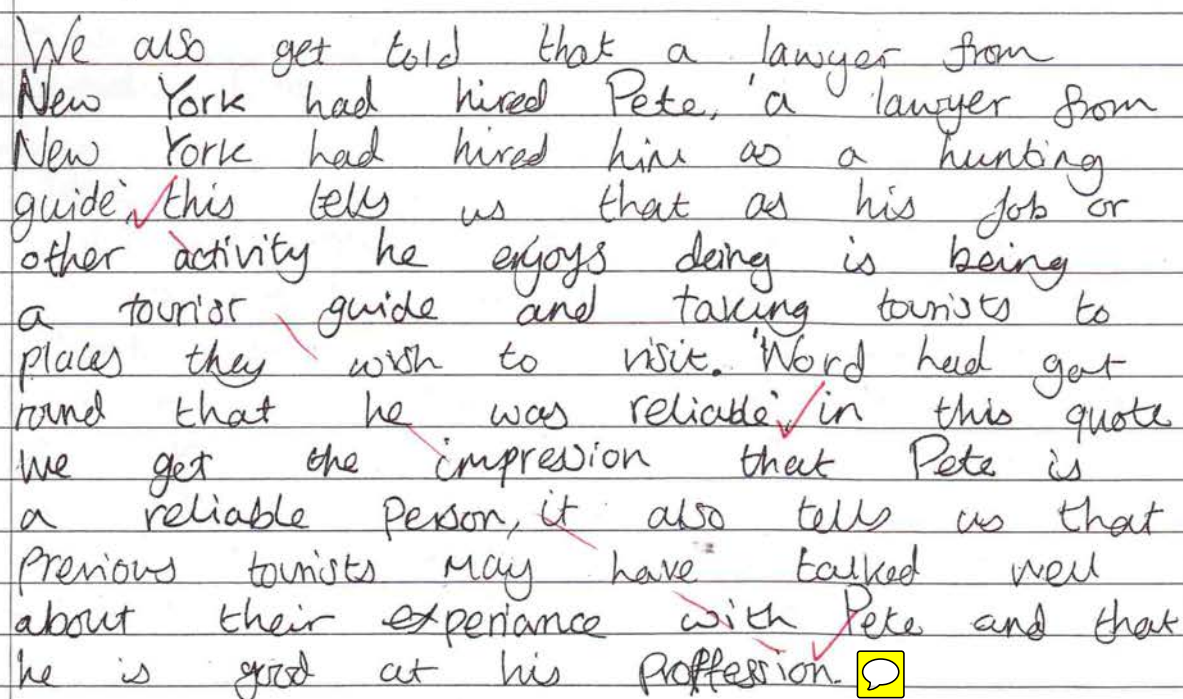 We also get told that a lawyer from
New York had hired Pete, 'a lawyer from
New York had hired him as a hunting
guide', this tells us that as his job or
other activity he enjoys doing is being
a tourist guide and taking tourists to
places they wish to visit. 'Word had got
round that he was reliable', in this quote
we get the impression that Pete is
a reliable person, it also tells us that
previous tourists may have talked well
about their experiance with Pete and that
he is good at his proffession.